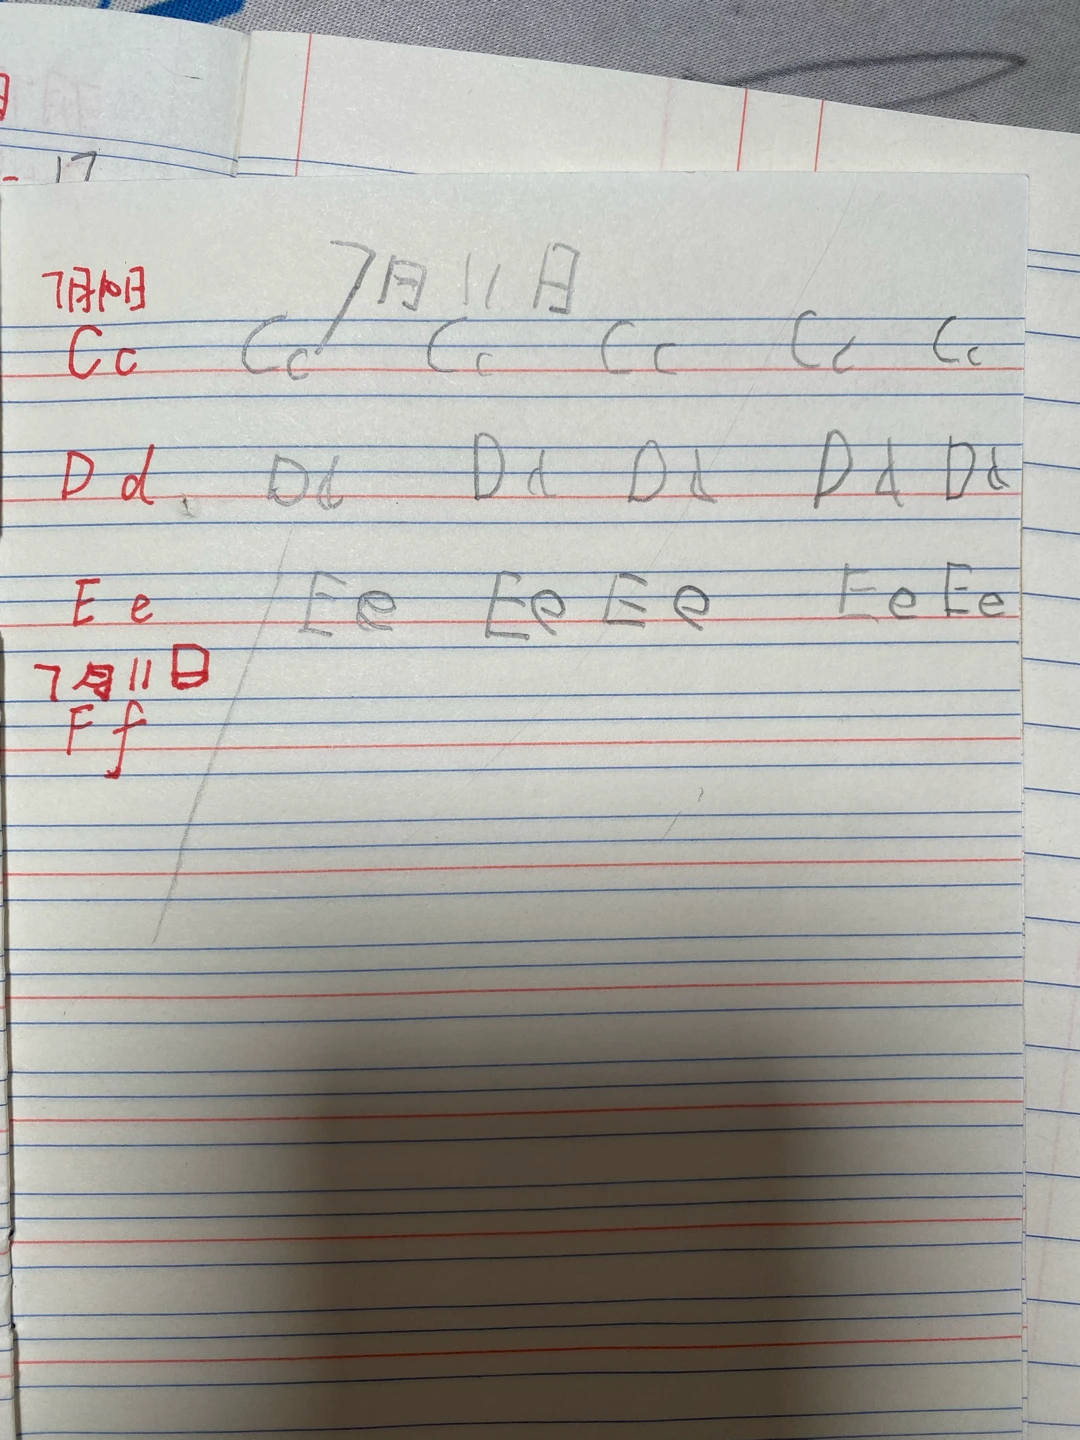 17
7月10日 7月11日
Cc Cc Cc Cc Cc Cc
Dd Dd Dd Dd Dd Dd
Ee Ee Ee Ee Ee Ee
7月11日
Ff